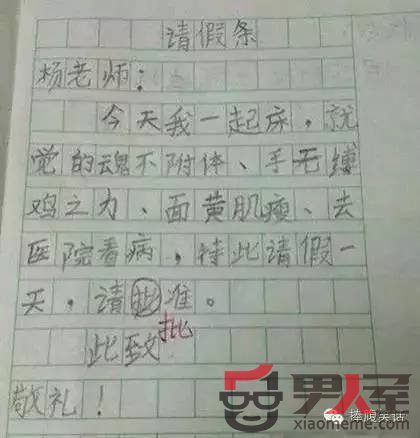 请假条
杨老师：
今天我一起床，就
觉的魂不附体、手无缚
鸡之力、面黄肌瘦、去
医院看病，特此请假一
天，请准。
批
此致
敬礼！
男人
xiaomeme.com
捧腹笑话